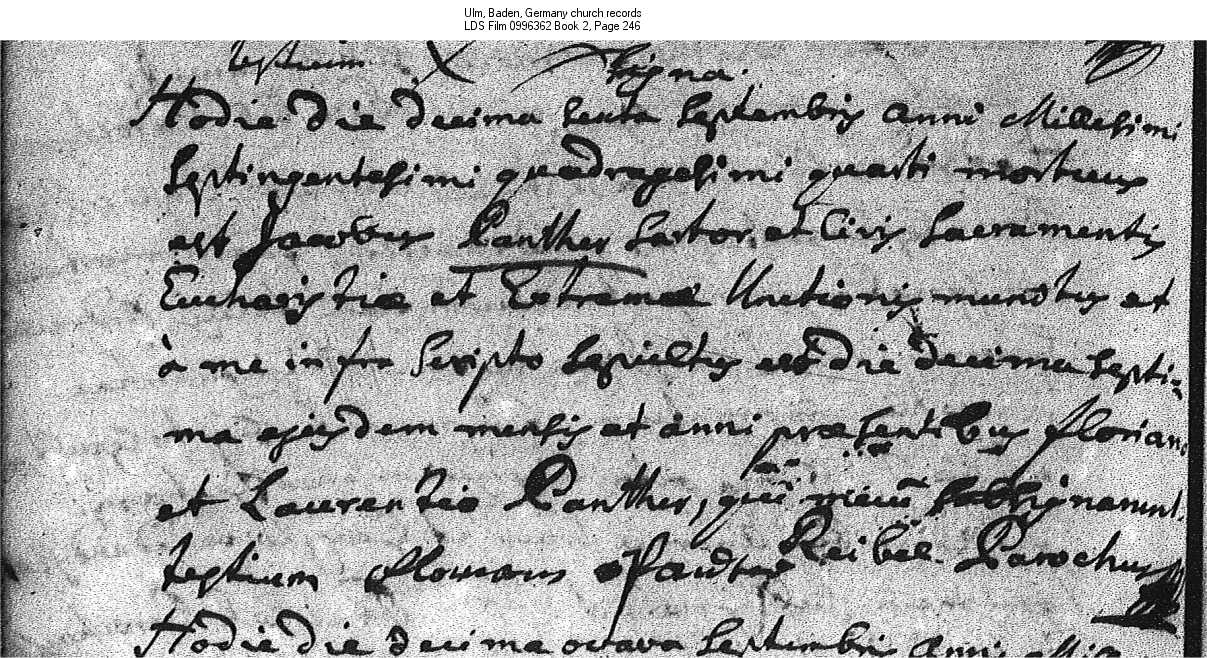 Ulm, Baden, Germany church records
LDS Film 0996362 Book 2, Page 246
testium signa.
Hodie die decima sexta Septembris anni Millesimi
Septingentesimi quadragesimi quarti mortuus
est Jacobus Panther Sartor et Civis Sacramentis
Eucharistiae et Extremae Unctionis munitus et
à me infra Scripto Sepultus est die decima septi=
ma ejusdem mensis et anni praesentibus floriano
et Laurentio Panther, qui mecum subsignarunt.
testium florianus Reibel Parochus
Hodie die decima octava Septembris anni